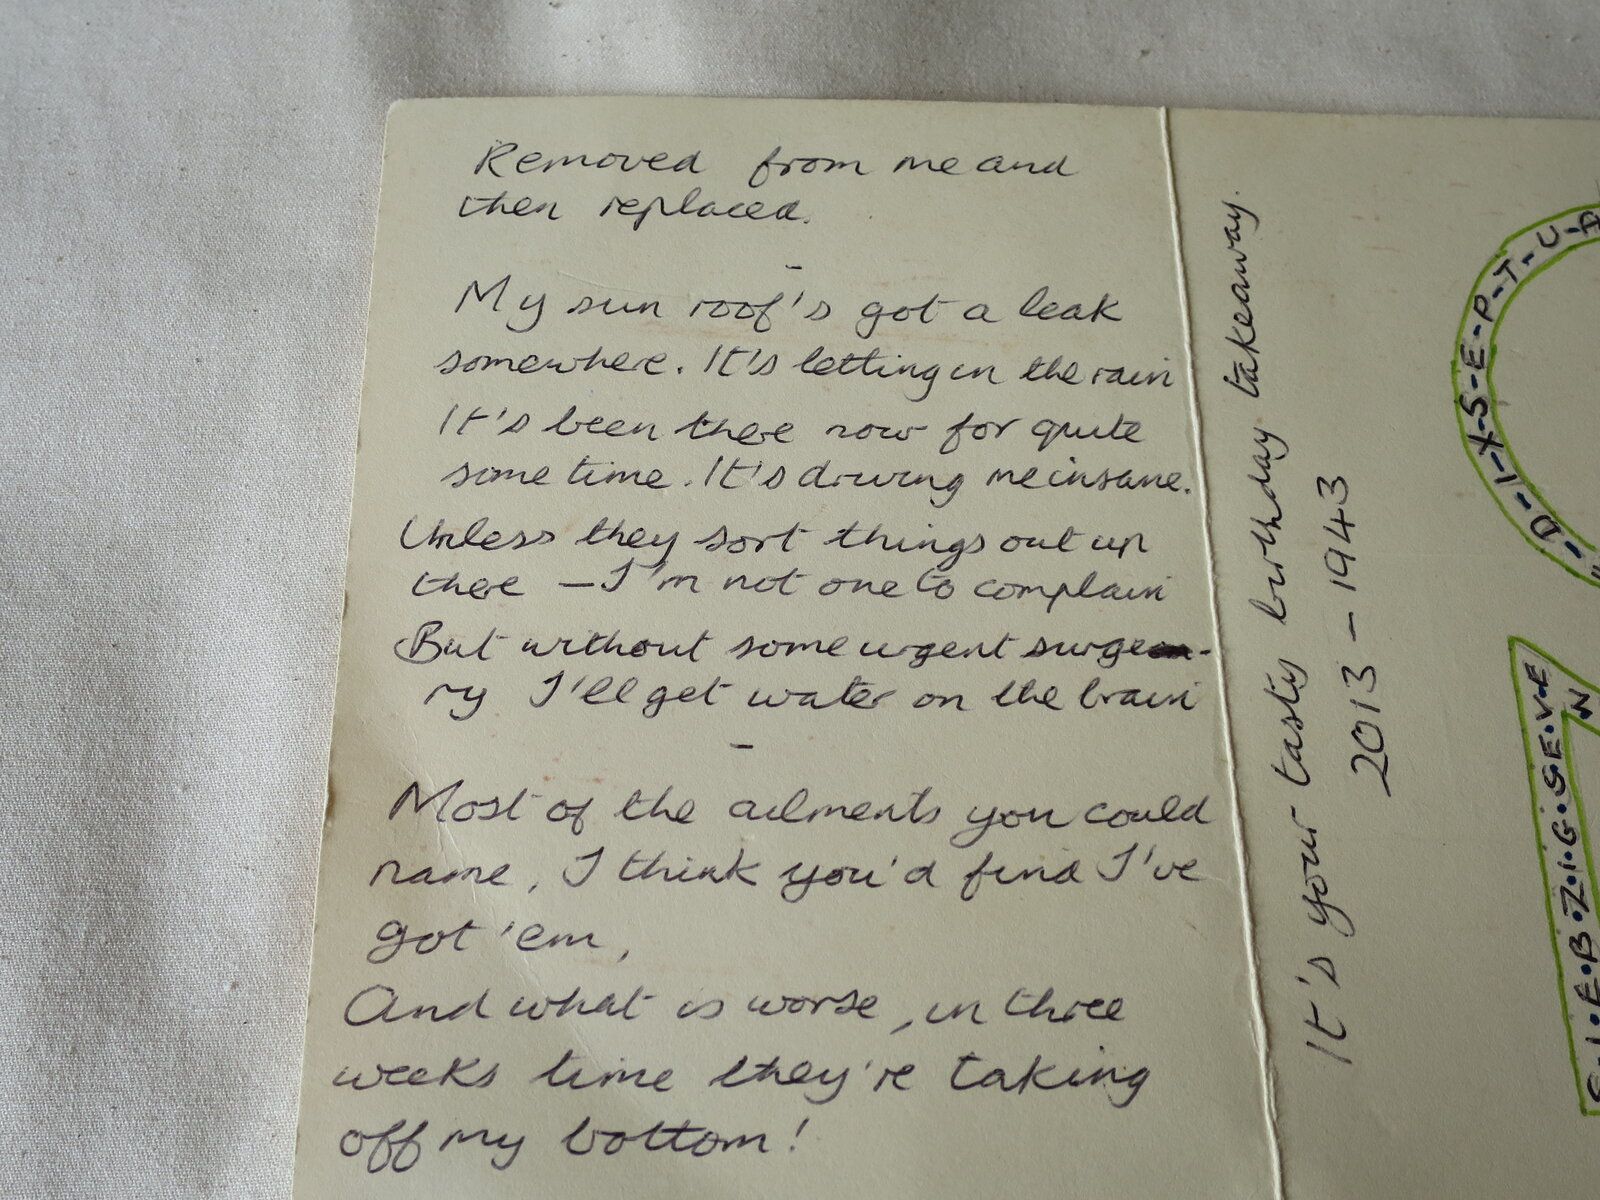 Removed from me and
then replaced.
-
My sun roof's got a leak
somewhere. It's letting in the rain
It's been there now for quite
some time. It's driving me insane.
Unless they sort things out up
there – I'm not one to complain
But without some urgent surge-
ry I'll get water on the brain
-
Most of the ailments you could
name, I think you'd find I've
got 'em,
And what is worse, in three
weeks time they're taking
off my bottom!
It's your tasty birthday takeaway.
2013 – 1943
D-I-X-S-E-P-T-U-
S·I·E·B·Z·I·G·SE·V·E
N